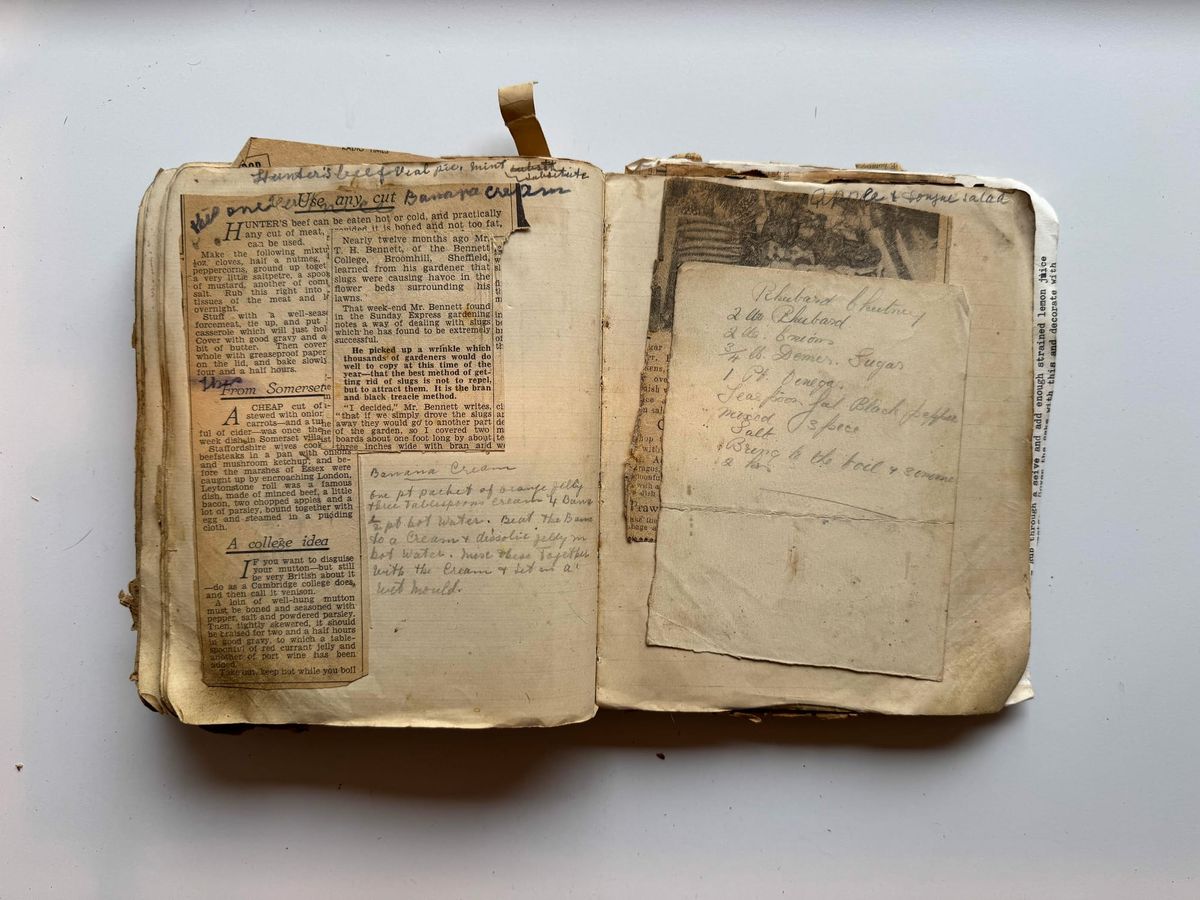 RADIO TIMES
Hunter's beef Veal pie. Mint
substitute
Banana Cream
Use any cut
HUNTER'S beef can be eaten hot or cold, and practically
any cut of meat,
can be used.
Make the following mixtu
4oz cloves, half a nutmeg,
peppercorns, ground up toget
a very little saltpetre, a spoo
of mustard, another of com
salt. Rub this right into
tissues of the meat and
overnight.
Stuff with a well-seas
forcemeat, tie up, and put
casserole which will just hol
Cover with good gravy and a
bit of butter. Then cover
whole with greaseproof paper
on the lid, and bake slowl
four and a half hours.
From Somerset
A CHEAP cut of
stewed with onion
carrots—and a
ful of cider—was once the
week dish in Somerset villa
Staffordshire wives cook
beefsteaks in a pan with onions
and mushroom ketchup, and be-
fore the marshes of Essex were
caught up by encroaching London,
Leytonstone roll was a famous
dish, made of minced beef, a little
bacon, two chopped apples and a
lot of parsley, bound together with
egg and steamed in a pudding
cloth.
A college idea
IF you want to disguise
your mutton—but still
be very British about it
—do as a Cambridge college does,
and then call it venison.
A loin of well-hung mutton
must be boned and seasoned with
pepper, salt and powdered parsley.
Then, tightly skewered, it should
be braised for two and a half hours
in good gravy, to which a table-
spoonful of red currant jelly and
another of port wine has been
added.
Take out, keep hot while you boil
Nearly twelve months ago Mr.
P. H. Bennett, of the Bennett
College, Broomhill, Sheffield,
learned from his gardener that
slugs were causing havoc in the
flower beds surrounding his
lawns.
That week-end Mr. Bennett found
in the Sunday Express gardening
notes a way of dealing with slugs
which he has found to be extremely
successful.
He picked up a wrinkle which
thousands of gardeners would do
well to copy at this time of the
year—that the best method of get-
ting rid of slugs is not to repel,
but to attract them. It is the bran
and black treacle method.
"I decided," Mr. Bennett writes,
"that if we simply drove the slugs
away they would go to another part
of the garden, so I covered two
boards about one foot long by about
three inches wide with bran and
Banana Cream
One pt packet of orange jelly
three tablespoons cream 4 Bana
½ pt hot water. Beat the Bana
to a cream & dissolve jelly in
hot water. Mix these together
with the cream & set in a
wet mould.
Apple & tongue salad
Rhubarb Chutney
2 lbs. Rhubarb
2 lbs. Onions
3/4 lb. Demer. Sugar
1 Pt. Vinegar
Teaspoon ful Black pepper
mixed spice
Salt
Bring to the boil & simmer
2 hrs
rub through a seive and add enough strained lemon juice
with this and decorate with